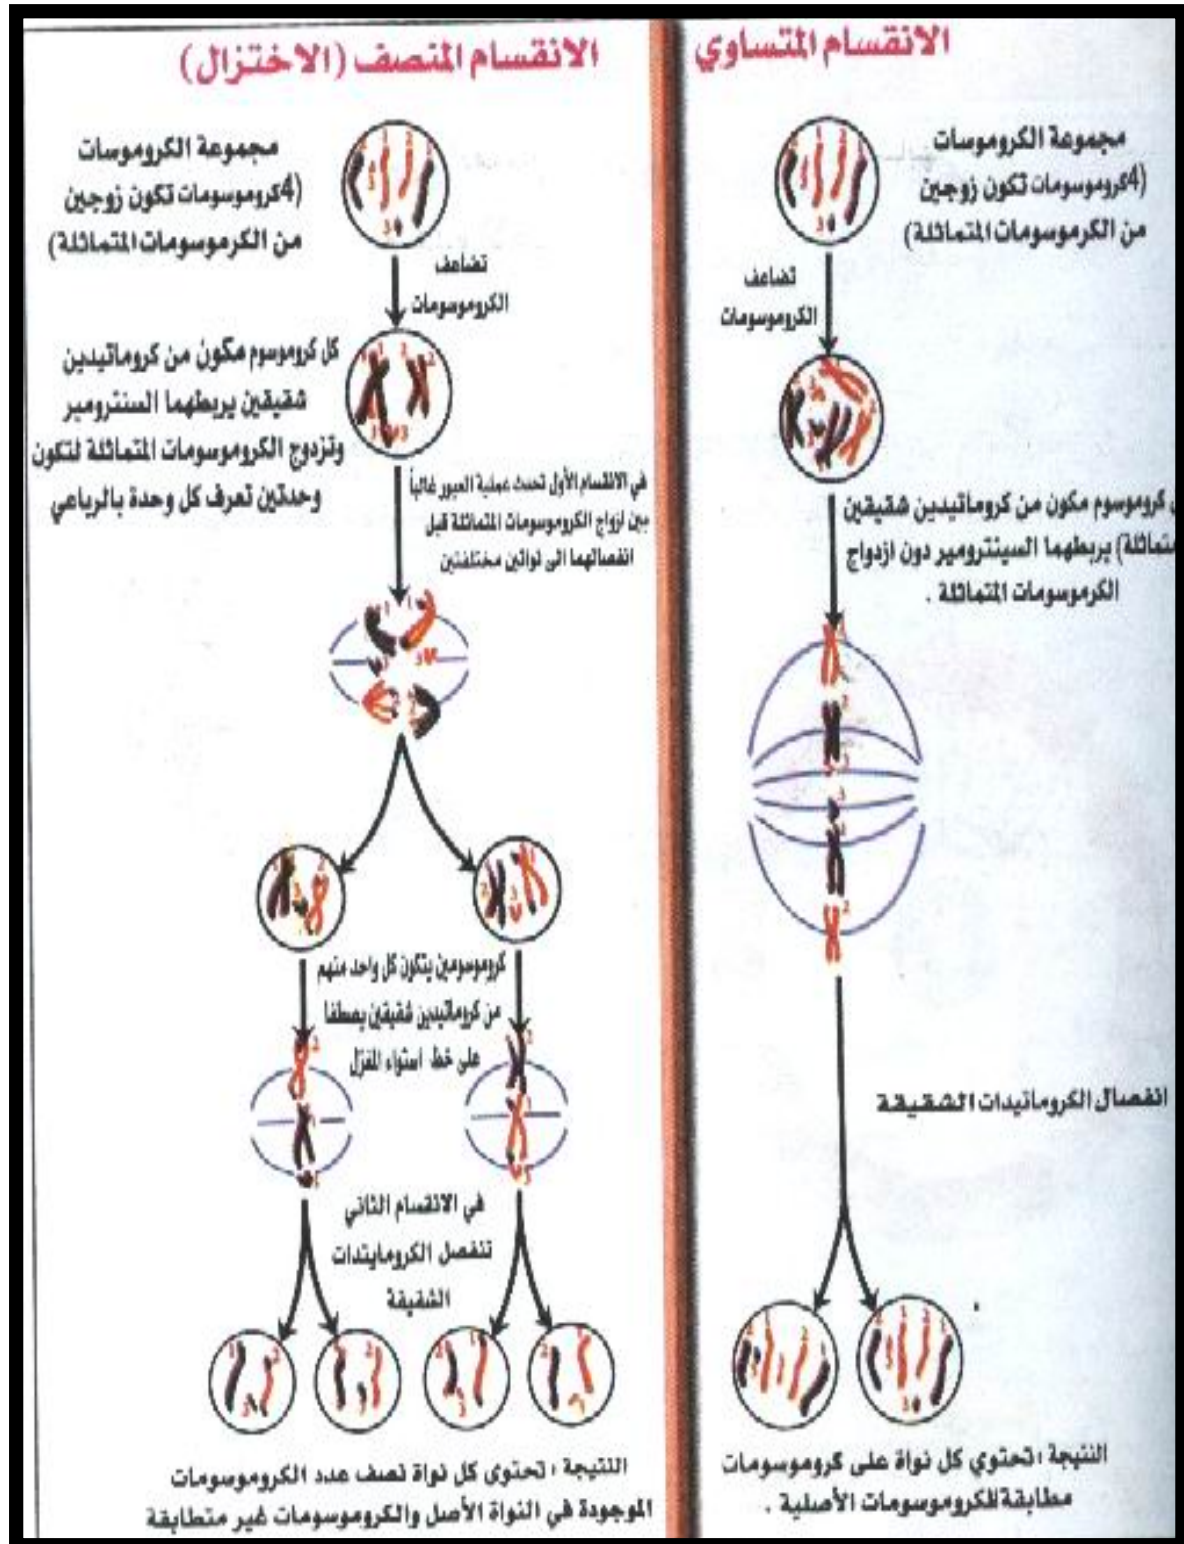 الانقسام المتساوي
مجموعة الكروموسات
(4كروموسومات تكون زوجين
من الكرموسومات المتماثلة)
تضاعف
الكروموسومات
كروموسوم مكون من كروماتيدين شقيقين
متماثلة) يربطهما السينترومير دون ازدواج
الكرموسومات المتماثلة .
انفصال الكروماتيدات الشقيقة
النتيجة ، تحتوي كل نواة على كروموسومات
مطابقة للكروموسومات الأصلية .
الانقسام المنصف (الاختزال)
مجموعة الكروموسات
(4كروموسومات تكون زوجين
من الكرموسومات المتماثلة)
تضاعف
الكروموسومات
كل كروموسوم مكون من كروماتيدين
شقيقين يربطهما السنترومير
وتزدوج الكروموسومات المتماثلة لتكون
وحدتين تعرف كل وحدة بالرباعي
في الانقسام الأول تحدث عملية العبور غالباً
بين ازواج الكروموسومات المتماثلة قبل
انفصالهما الى نواتين مختلفتين
كروموسومين يتكون كل واحد منهم
من كروماتيدين شقيقين يصطفا
على خط استواء المغزل
في الانقسام الثاني
تنفصل الكرومايتدات
الشقيقة
النتيجة ، تحتوى كل نواة نصف عدد الكروموسومات
الموجودة في النواة الأصل والكروموسومات غير متطابقة